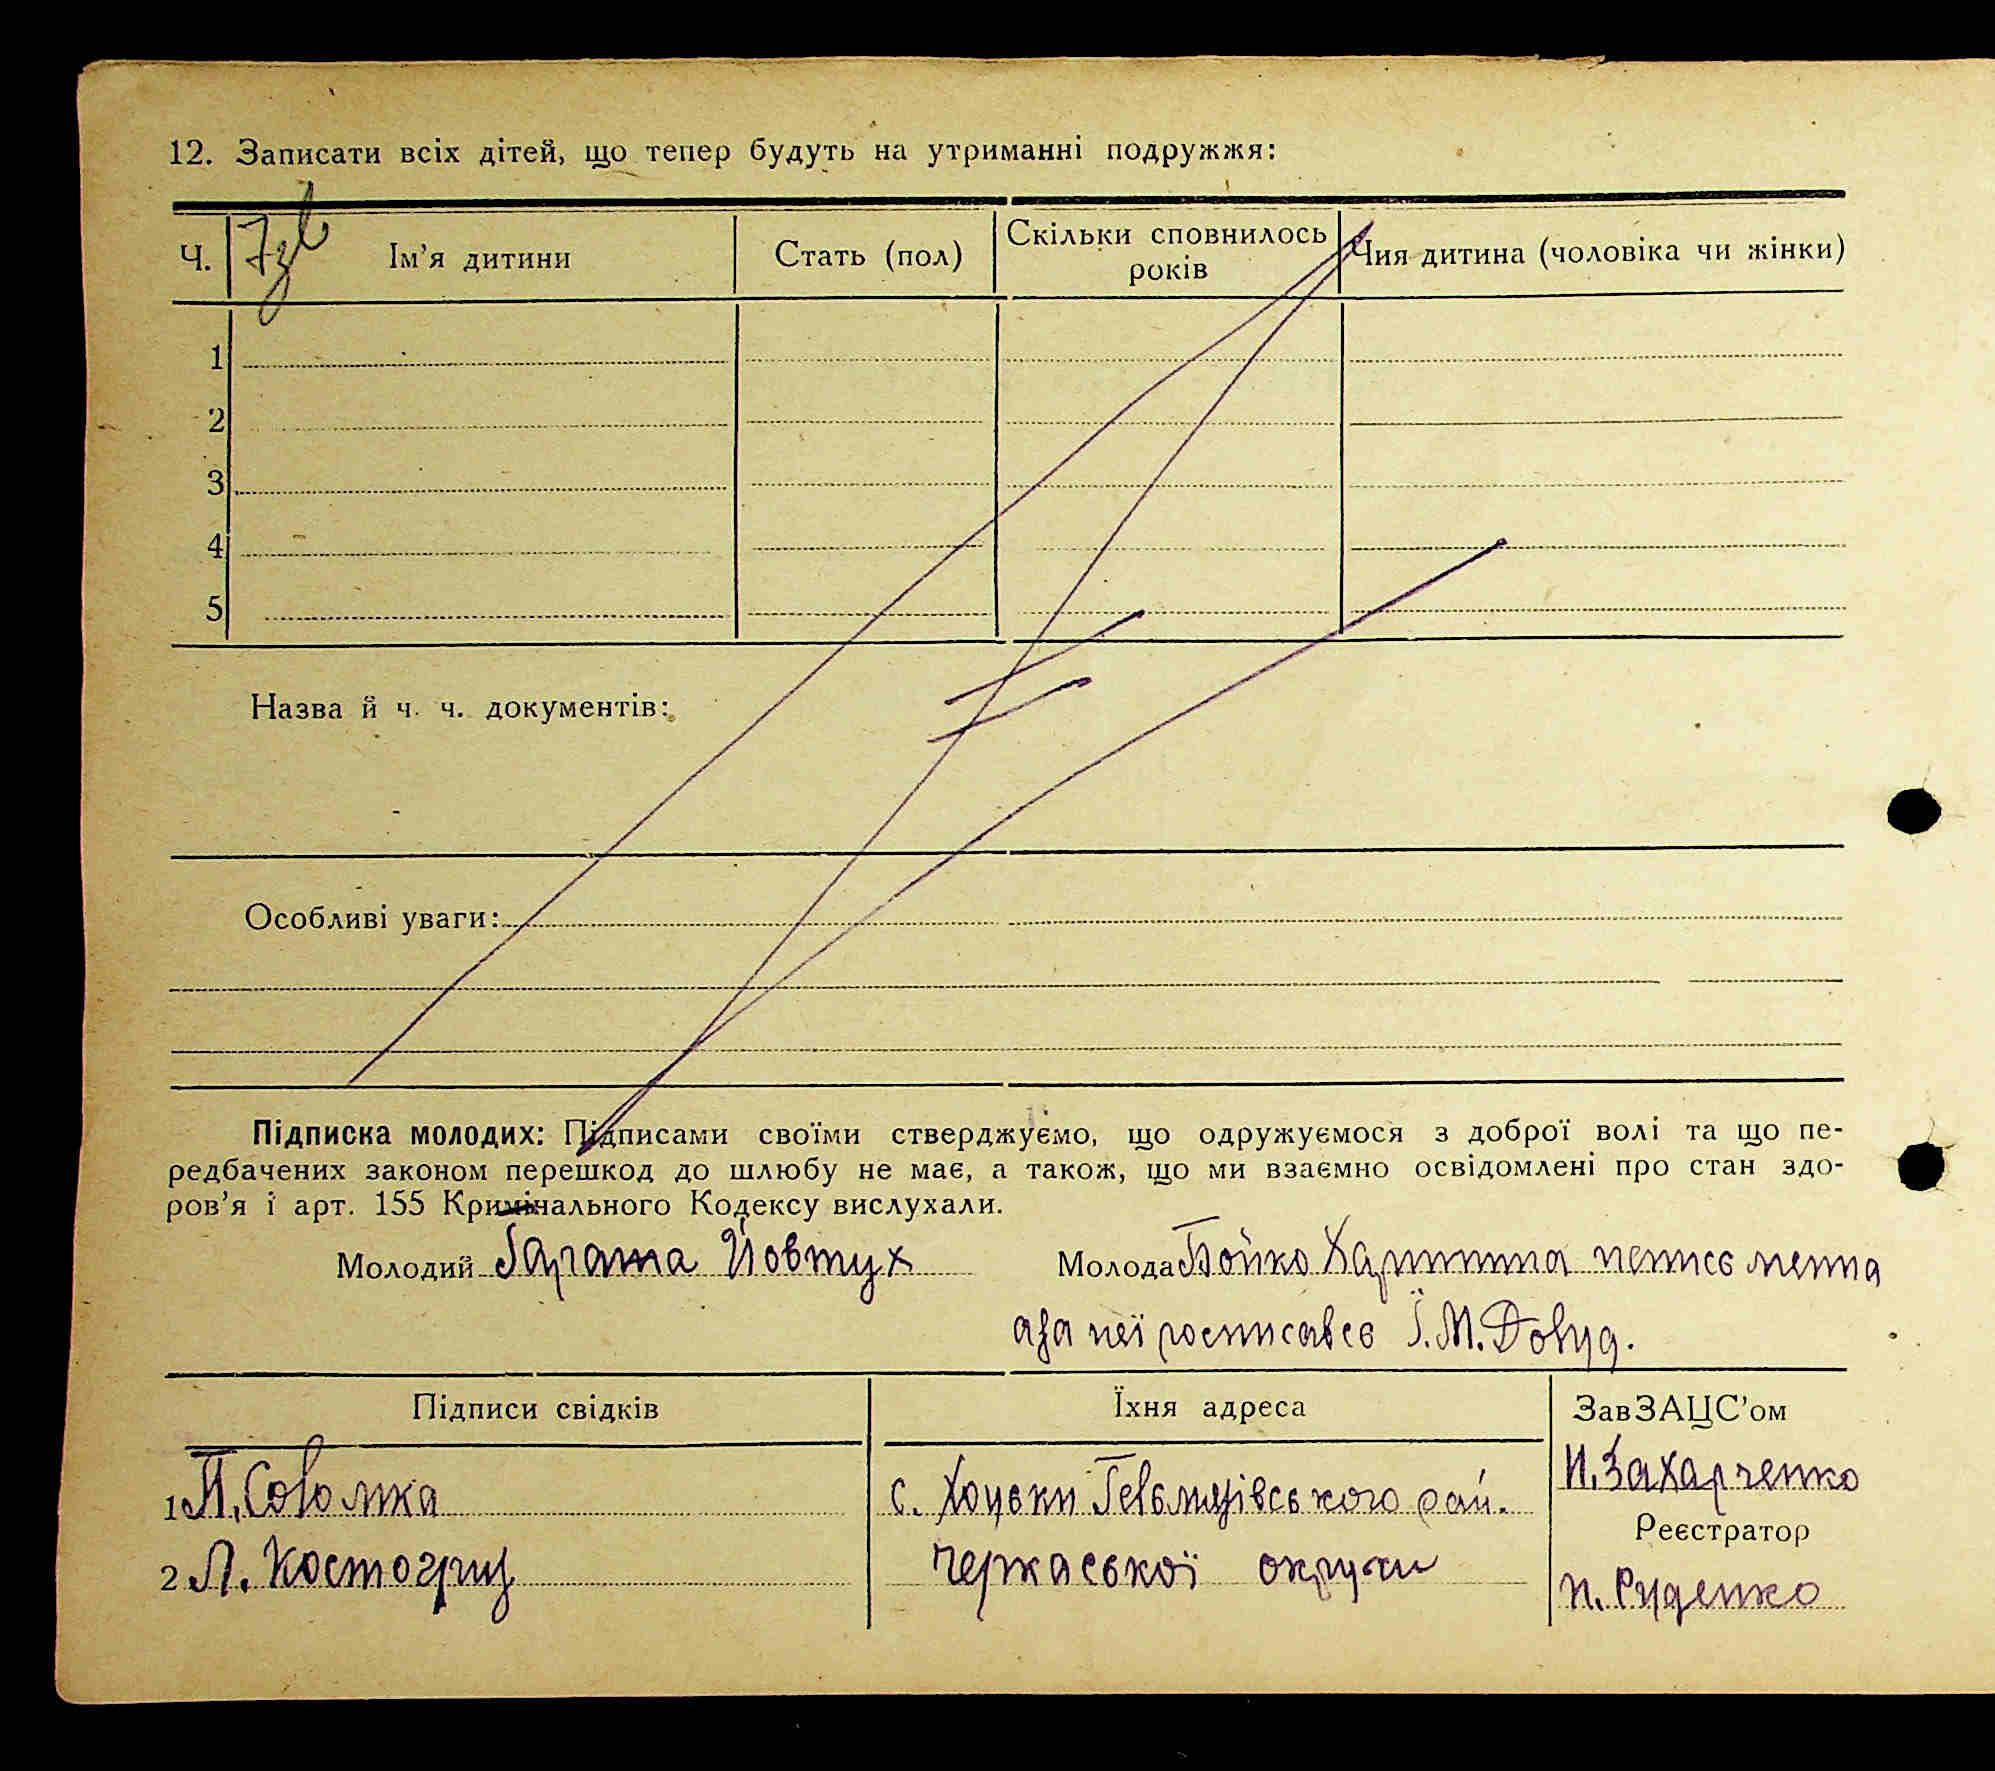 12. Записати всіх дітей, що тепер будуть на утриманні подружжя:
Ч.
Ім'я дитини
Стать (пол)
Скільки сповнилось
років
Чия дитина (чоловіка чи жінки)
1
2
3
4
5
Назва й ч. ч. документів:
Особливі уваги:
Підписка молодих: Підписами своїми стверджуємо, що одружуємося з доброї волі та що пе-
редбачених законом перешкод до шлюбу не має, а також, що ми взаємно освідомлені про стан здо-
ров'я і арт. 155 Кримінального Кодексу вислухали.
Молодий Йовтух
Молода Бойко
а за неї росписавсь І. М.
Підписи свідків
Їхня адреса
ЗавЗАЦС'ом
1 П. Соломка
с. Хоцьки Гельмязівського рай.
И. Захарченко
Реєстратор
2 Л. Костогриз
Черкаської округи
П. Руденко